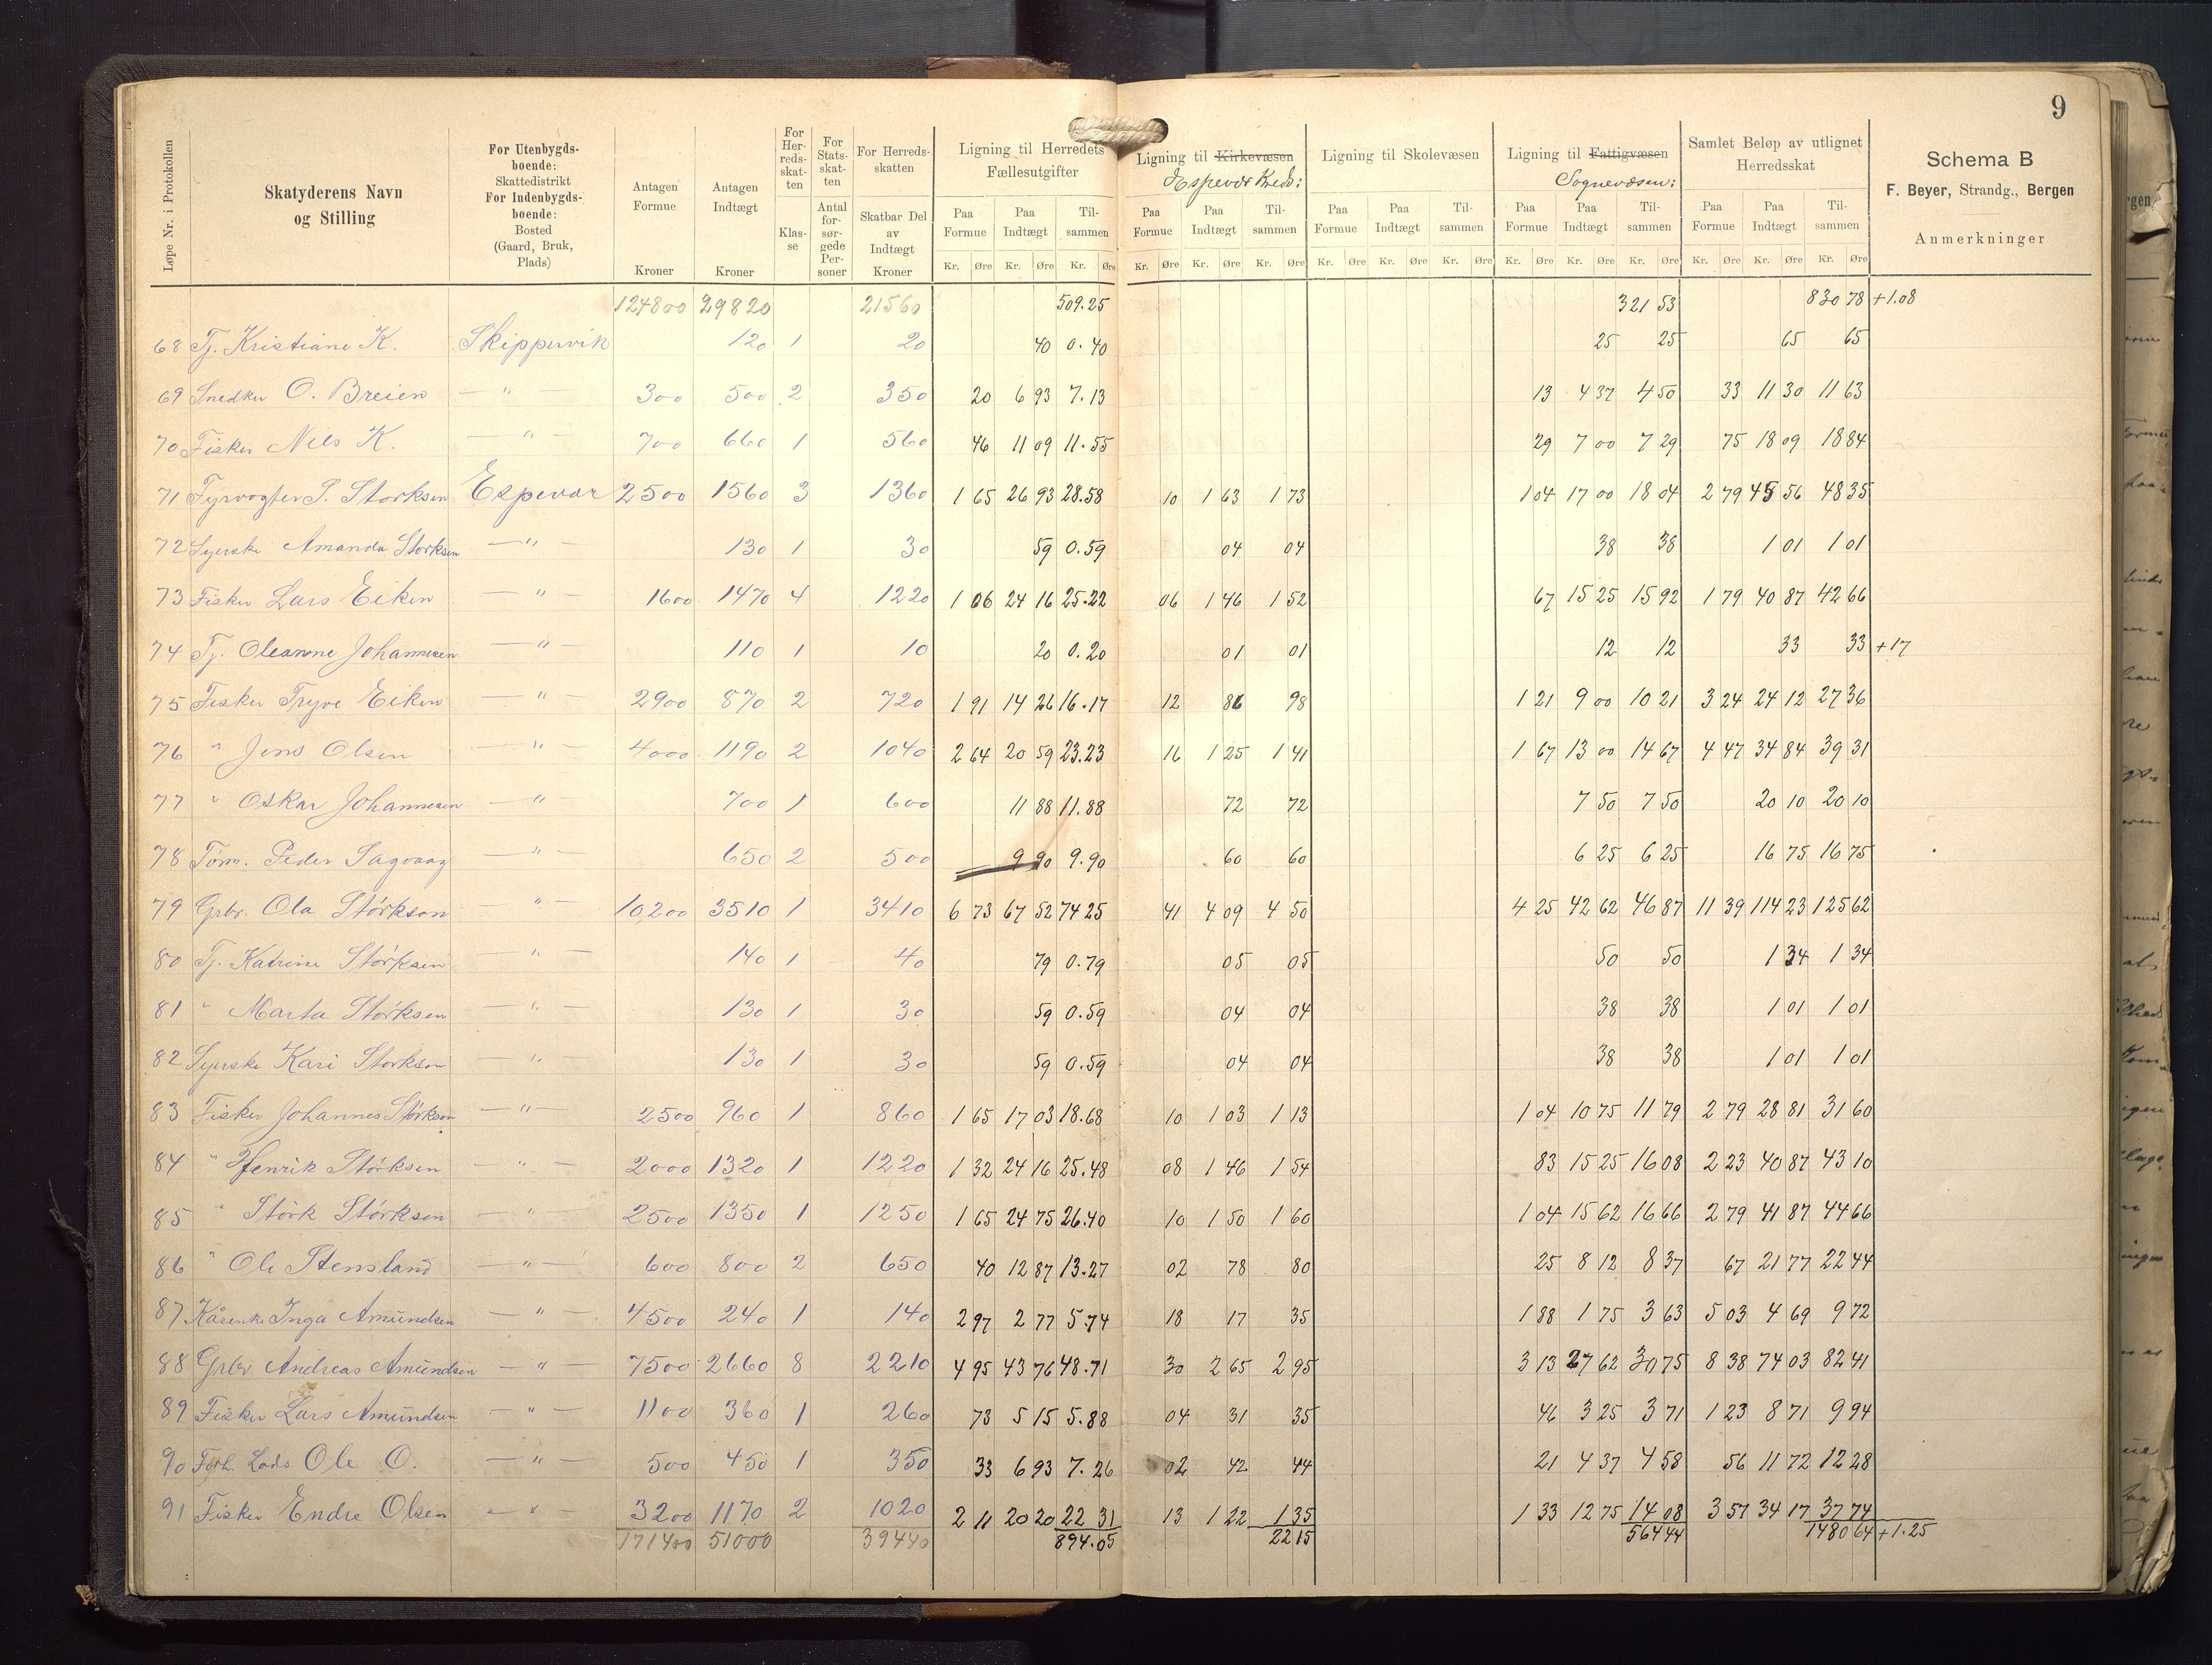 9
Løpe Nr. i Protokollen
Skatyderens Navn og Stilling
For Utenbygdsboende: Skattedistrikt For Indenbygdsboende: Bosted (Gaard, Bruk, Plads)
Antagen Formue Kroner
Antagen Indtægt Kroner
For Herredsskatten Klasse
For Statsskatten Antal forsørgede Personer
For Herredsskatten Skatbar Del av Indtægt Kroner
Ligning til Herredets Fællesutgifter
Paa Formue Paa Indtægt Tilsammen
Kr. Øre Kr. Øre Kr. Øre
Ligning til Kirkevæsen
Espevær Kreds:
Paa Formue Paa Indtægt Tilsammen
Kr. Øre Kr. Øre Kr. Øre
Ligning til Skolevæsen
Paa Formue Paa Indtægt Tilsammen
Kr. Øre Kr. Øre Kr. Øre
Ligning til Fattigvæsen
Sognevæsen:
Paa Formue Paa Indtægt Tilsammen
Kr. Øre Kr. Øre Kr. Øre
Samlet Beløp av utlignet Herredsskat
Paa Formue Paa Indtægt Tilsammen
Kr. Øre Kr. Øre Kr. Øre
Schema B
F. Beyer, Strandg., Bergen
Anmerkninger
124800 29820 21560 509.25 321 53 830 78 +1.08
68 Tj. Kristiane K. Skippervik 120 1 20 40 0.40 25 25 65 65
69 Snedker O. Breien — " — 300 500 2 350 20 6 93 7.13 13 4 37 4 50 33 11 30 11 63
70 Fisker Nils K. — " — 700 660 1 560 46 11 09 11.55 29 7 00 7 29 75 18 09 18 84
71 Fyrvogter P. Størksen Espevær 2500 1560 3 1360 1 65 26 93 28.58 10 1 63 1 73 1 04 17 00 18 04 2 79 45 56 48 35
72 Syerske Amanda Størksen — " — 130 1 30 59 0.59 04 04 38 38 1 01 1 01
73 Fisker Lars Eiken — " — 1600 1470 4 1220 1 06 24 16 25.22 06 1 46 1 52 67 15 25 15 92 1 79 40 87 42 66
74 Tj. Oleanne Johannesen — " — 110 1 10 20 0.20 01 01 12 12 33 33 +17
75 Fisker Tryve Eiken — " — 2900 870 2 720 1 91 14 26 16.17 12 86 98 1 21 9 00 10 21 3 24 24 12 27 36
76 " Jens Olsen — " — 4000 1190 2 1040 2 64 20 59 23.23 16 1 25 1 41 1 67 13 00 14 67 4 47 34 84 39 31
77 " Oskar Johannesen — " — 700 1 600 11 88 11.88 72 72 7 50 7 50 20 10 20 10
78 Tøm. Peder Sagvaag — " — 650 2 500 9 90 9.90 60 60 6 25 6 25 16 75 16 75
79 Grbr. Ola Størkson — " — 10200 3510 1 3410 6 73 67 52 74 25 41 4 09 4 50 4 25 42 62 46 87 11 39 114 23 125 62
80 Tj. Katrine Størksen — " — 140 1 40 79 0.79 05 05 50 50 1 34 1 34
81 " Marta Størksen — " — 130 1 30 59 0.59 04 04 38 38 1 01 1 01
82 Syerske Kari Størkson — " — 130 1 30 59 0.59 04 04 38 38 1 01 1 01
83 Fisker Johannes Størkson — " — 2500 960 1 860 1 65 17 03 18.68 10 1 03 1 13 1 04 10 75 11 79 2 79 28 81 31 60
84 " Henrik Størksen — " — 2000 1320 1 1220 1 32 24 16 25.48 08 1 46 1 54 83 15 25 16 08 2 23 40 87 43 10
85 " Størk Størksen — " — 2500 1350 1 1250 1 65 24 75 26.40 10 1 50 1 60 1 04 15 62 16 66 2 79 41 87 44 66
86 " Ole Stensland — " — 600 800 2 650 40 12 87 13.27 02 78 80 25 8 12 8 37 67 21 77 22 44
87 Inga Amundsen — " — 4500 240 1 140 2 97 2 77 5.74 18 17 35 1 88 1 75 3 63 5 03 4 69 9 72
88 Grbr. Andreas Amundsen — " — 7500 2660 8 2210 4 95 43 76 48.71 30 2 65 2 95 3 13 27 62 30 75 8 38 74 03 82 41
89 Fisker Lars Amundsen — " — 1100 360 1 260 73 5 15 5.88 04 31 35 46 3 25 3 71 1 23 8 71 9 94
90 Forh. Lods Ole O. — " — 500 450 1 350 33 6 93 7.26 02 42 44 21 4 37 4 58 56 11 72 12 28
91 Fisker Endre Olsen — " — 3200 1170 2 1020 2 11 20 20 22 31 13 1 22 1 35 1 33 12 75 14 08 3 57 34 17 37 74
171400 51000 39440 894.05 22 15 564 44 1480 64 +1.25